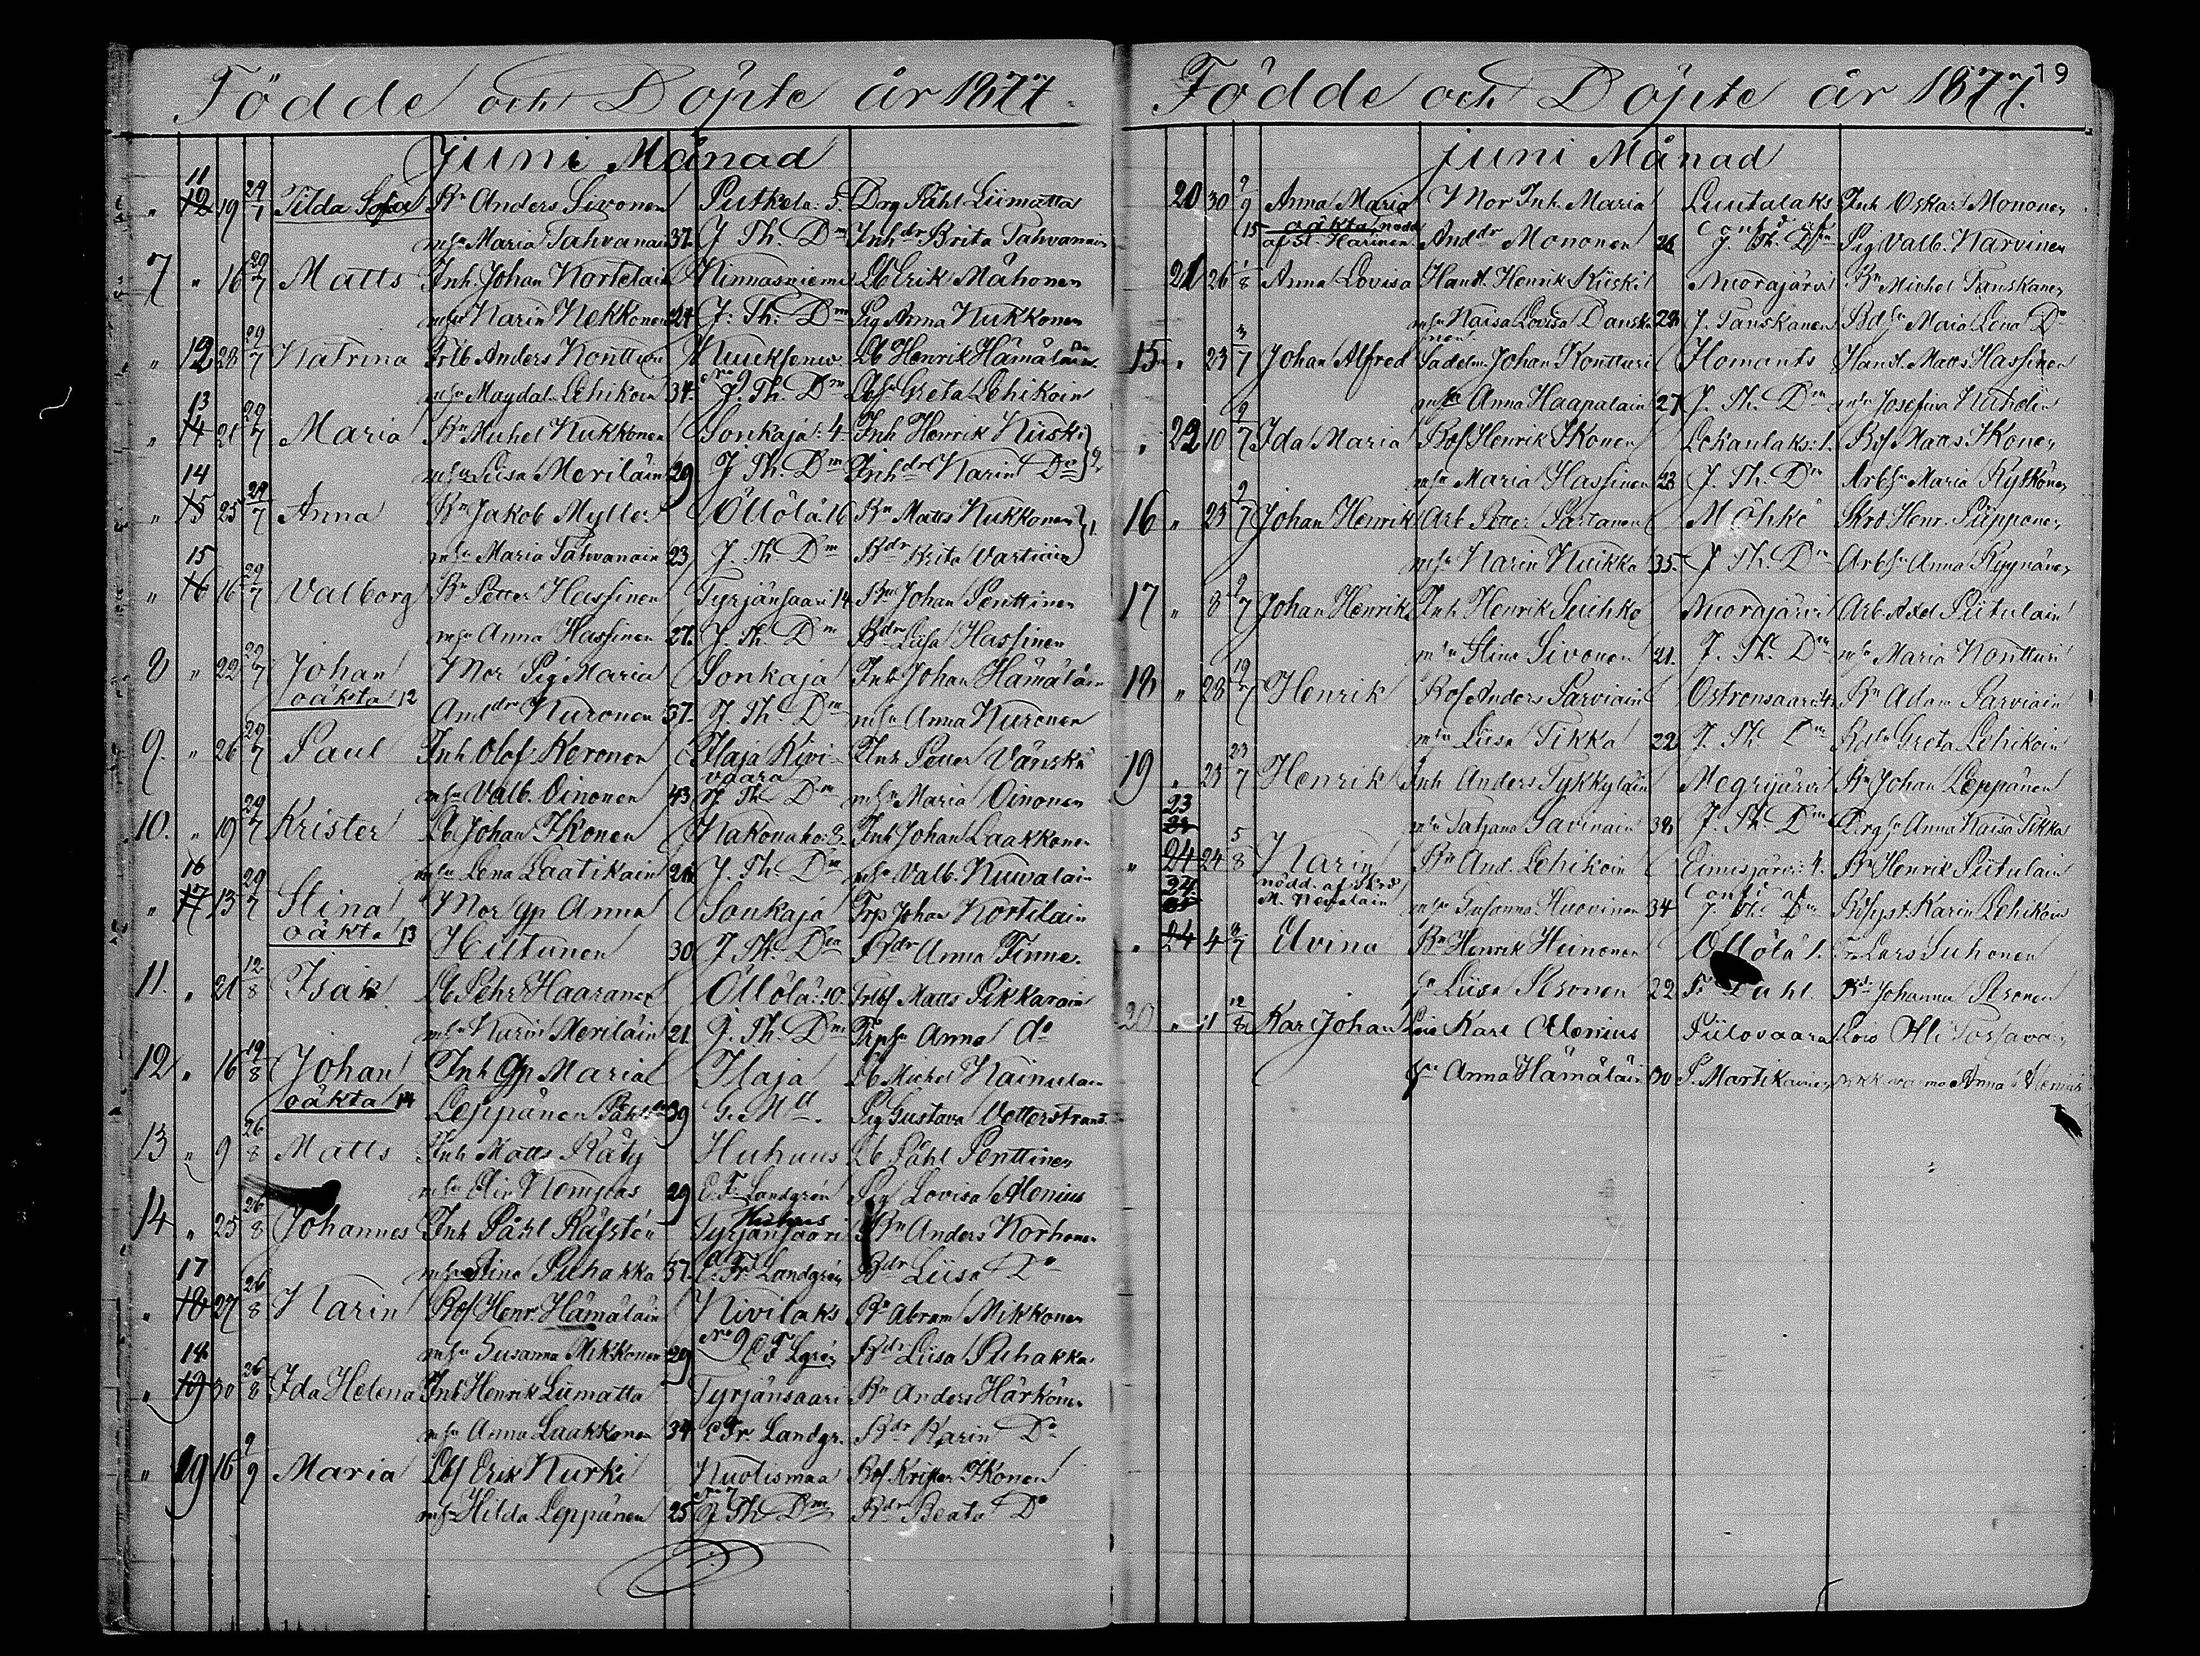 Födde och Döpte år 1877.
Juni Månad
11
" 12 19 29/7 Tilda Sofia Bn Anders Sivonen Putkela: 5. Drg Påhl Liimatta
mhu Maria Tahvanain 37. J. Th. Dm Inhdr Brita Tahvanain
7 " 16 29/7 Matts Inh. Johan Kortelain Kinnasniemi Lb Erik Mähönen
mhu Karin Kekkonen 24. J. Th. Dm Pig Anna Kukkonen
" 12 28 29/7 Katrina Anders Kontturi Lb Henrik Hämäläin
mhu Magdal. Lehikoin 34. J. Th. Dm Greta Lehikoin
13
" 14 21 29/7 Maria Bn Michel Kukkonen Sonkaja: 4 Inh Henrik Kiiski
mhu Liisa Meriläin 29 J. Th. Dm Inhdr Karin Do
14
" 15 25 29/7 Anna Bn Jakob Myller Öllölä: 16 Bn Matts Kukkonen
mhu Maria Tahvanain 23 J. Th. Dm Bdr Brita Vartiain
15
" 16 16 29/7 Valborg Bn Petter Hassinen Tyrjänsaari 14 Bn Johan Penttinen
mhu Anna Hassinen 27. J. Th. Dm Bdr Liisa Hassinen
8 " 22 29/7 Johan Mor Pig Maria Sonkaja Inh Johan Hämäläin
oäkta 12 Anddr Kuronen 37. J. Th. Dm mhu Anna Kuronen
9. " 26 29/7 Paul Inh Olof Keronen Ilaja Kivi- Inh Petter Vänskä
vaara
mhu Valb. Oinonen 43 J. Th. Dm mhu Maria Oinonen
10. " 19 29/7 Krister Lb Johan Ikonen Kakonaho: 8. Inh Johan Laakkonen
mhu Lena Laatikain 26 J. Th. Dm mhu Valb. Kuivalain
16
" 17 13 29/7 Stina Mor Gp Anna Sonkaja Trp Johan Kortilain
oäkta 13 Hiltunen 30 J. Th. Dm Bdr Anna Timne.
11. " 21 12/8 Isak Lb Pehr Haaranen Öllölä: 10. Matts Pikkarain
mhu Karin Meriläin 21 J. Th. Dm Anna do
12 " 16 19/8 Johan Inh Gp Maria Ilaja Lb Michel Kainulain
oäkta 14 Leppänen Påhldr 39 G. Mll. Pig Gustava Vetterstrand.
13 " 9 26/8 Matts Inh Matts Räty Huhuus Lb Påhl Penttinen
mhu Elin Kempas 29 E. F. Landgrén Pig Lovisa Alenius
14 " 25 26/8 Johannes Inh Påhl Räfstén Tyrjänsaari Bn Anders Korhonen
Huhus
mhu Stina Puhakka 37. E. Fr. Landgrén Bdr Liisa Do
17
" 18 27 26/8 Karin Bof Henr. Hämäläin Kivilaks Bn Abram Mikkonen
mhu Susanna Mikkonen 29 No 9 E F Lgrén Bdr Liisa Puhakka
18
" 19 30 26/8 Ida Helena Inh Henrik Liimatta Tyrjänsaari Bn Anders Härkönen
mhu Anna Laakkonen 34 E Fr. Landgr. Bdr Karin Do
" 19 16 9/9 Maria Lbf Erik Kurki Kuolismaa Bof Krister Ikonen
mhu Hilda Leppänen 25 J Th Dm Bdr Beata Do
19
Födde och Döpte år 1877.
Juni Månad
20 30 9/9 Anna Maria Mor Inh. Maria Luutalaks Inh Oskar Mononen
15 oäkta, nödd
af Sl. Harinen Anddr Mononen 26 J. Th. Dm Pig Valb. Karvinen
21 26 1/8 Anna Lovisa Handl. Henrik Kiiski Nuorajärvi Bn Michel Tanskanen
mhu Kaisa Lovisa Danska 28 J. Tanskanen Maia Lena Do
nen
15 " 23 3/7 Johan Alfred Sadelm. Johan Kontturi Ilomants Handl. Matts Hassinen
mhu Anna Haapalain 27 J. Th. Dm mhu Josefina
" 22 10 9/7 Ida Maria Bof Henrik Ikonen Lehanlaks: 1. Bof Matts Ikonen
mhu Maria Hassinen 23 J. Th. Dm Arbhu Maria Kylkönen
16 " 23 9/7 Johan Henrik Arb Petter Partanen Möhkö Skrd Henr. Piipponen
mhu Karin Kuikka 35. J Th. Dm Arbhu Anna Ryynänen
17 " 8 9/7 Johan Henrik Inh Henrik Suhko Nuorajärvi Arb Axel Piitulain
mhu Stina Sivonen 21. J. Th. Dm mhu Maria Kontturi
18 " 28 19/7 Henrik Bof Anders Parviain Ostronsaari: 4. Bn Adam Parviain
mhu Liisa Tikka 22 J. Th. Dm Greta Lehikoin
19 " 23 23/7 Henrik Inh Anders Tykkyläin Megrijärvi Bn Johan Leppänen
23
mhu Tatjana Savinain 38 J. Th. Dm Drghu Anna Kaisa Tikka
" 24 24 5/8 Karin Bn And. Lehikoin Eimisjärvi: 4. Bn Henrik Piitulain
24 nödd. af Skrd
mhu Susanna Huovinen 34 J. Th. Dm Karin Lehikoin
" 24 4 8/7 Elvina Bn Henrik Heinonen Öllölä 1. Lars Suhonen
hu Liisa Peronen 22 F. Dahl. Bdr Johanna Peronen
20 " 1 12/8 Karl Johan Karl Alenius Piilovaara Tossavain
hu Anna Hämäläin 30 P. Martikainen Anna Alenius